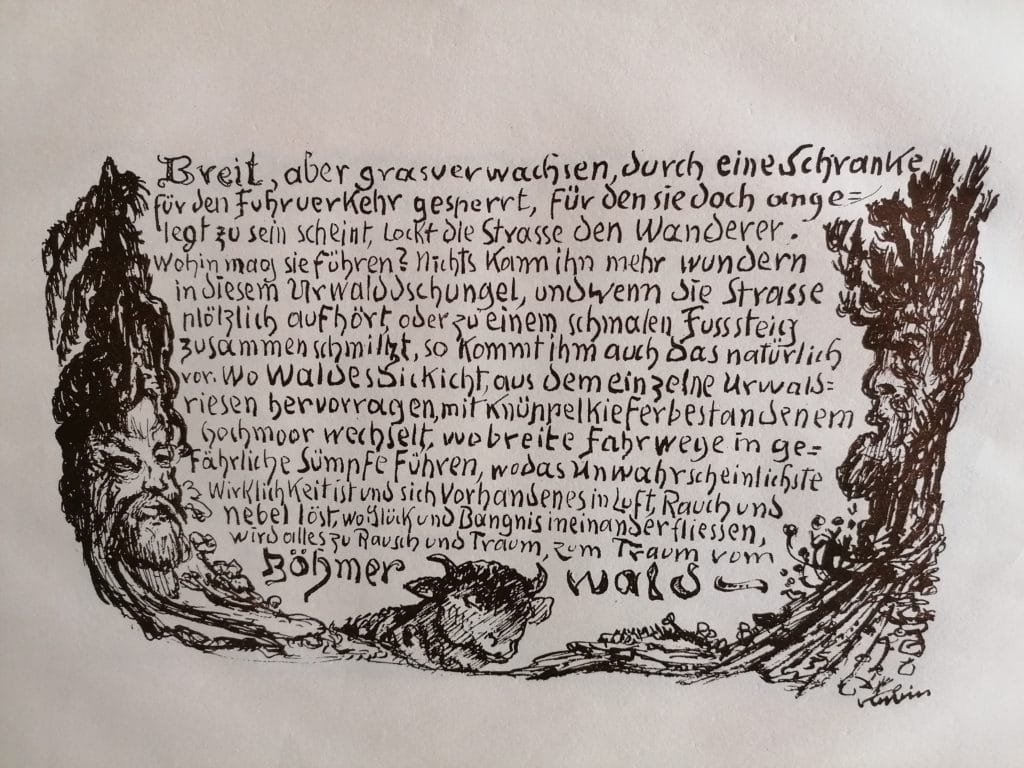 Breit, aber grasverwachsen, durch eine Schranke
für den Fuhrverkehr gesperrt, für den sie doch ange=
legt zu sein scheint, lockt die Strasse den Wanderer.
Wohin mag sie führen? Nichts kann ihn mehr wundern
in diesem Urwalddschungel, und wenn die Strasse
plötzlich aufhört, oder zu einem schmalen Fusssteig
zusammenschmilzt, so kommt ihm auch das natürlich
vor. Wo Waldesdickicht, aus dem einzelne Urwald=
riesen hervorragen, mit Knüppelkieferbestandenem
Hochmoor wechselt, wo breite Fahrwege in ge=
fährliche Sümpfe führen, wo das Unwahrscheinlichste
Wirklichkeit ist und sich Vorhandenes in Luft, Rauch und
Nebel löst, wo Glück und Bangnis ineinanderfliessen,
wird alles zu Rausch und Traum, zum Traum vom
Böhmer Wald
Kubin